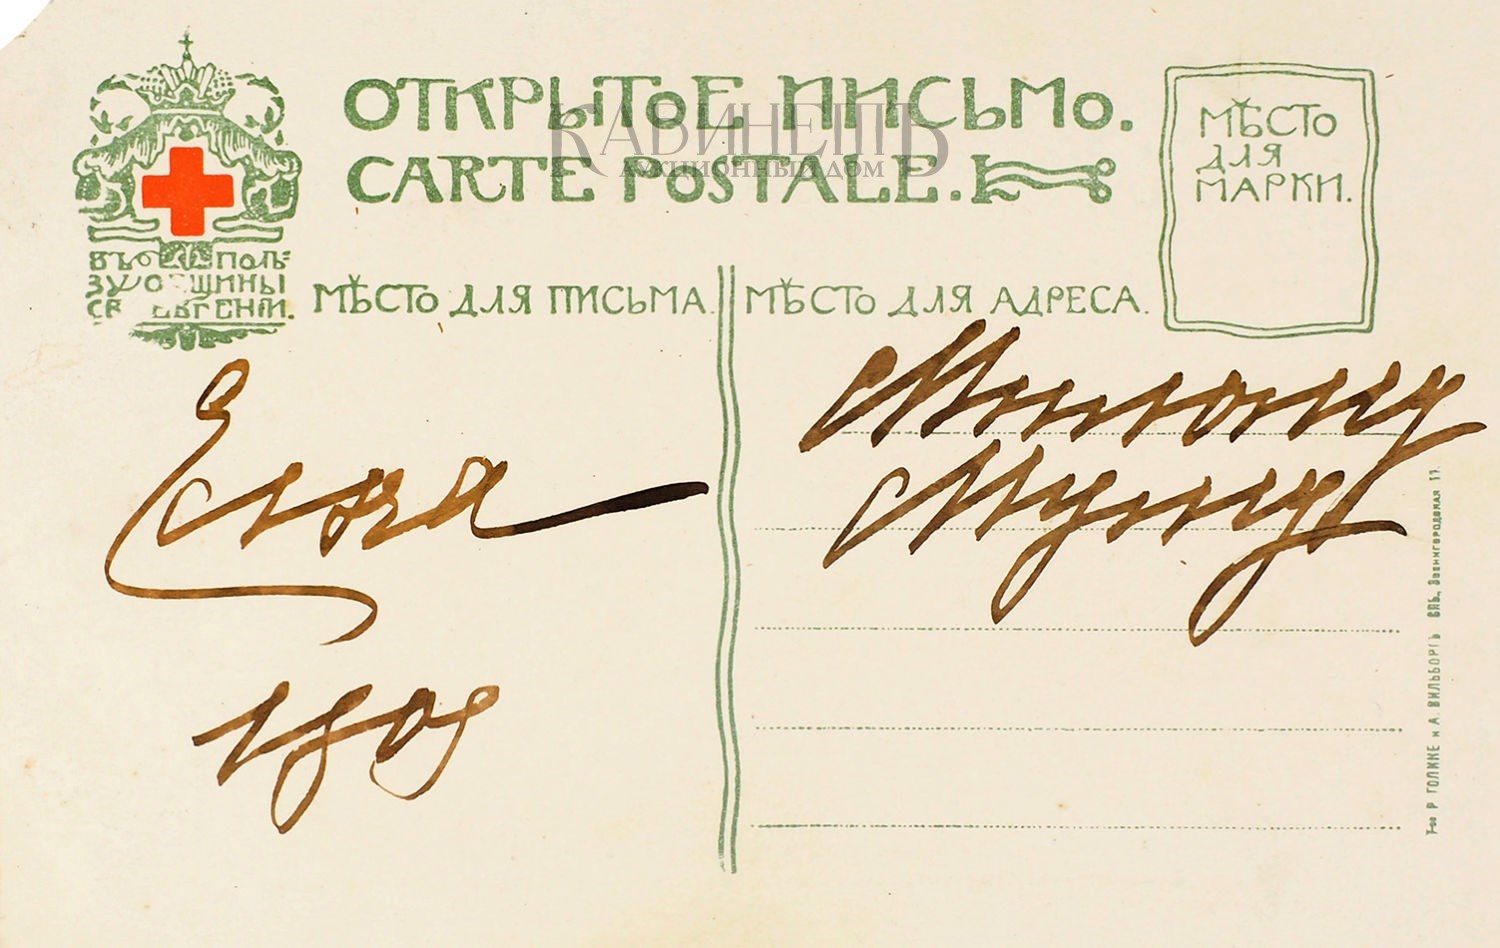 ОТКРЫТОЕ ПИСЬМО.
CARTE POSTALE.
КАБИНЕТЪ
АУКЦИОННЫЙ ДОМ
МѢСТО
ДЛЯ
МАРКИ.
ВЪ ПОЛЬ=
ЗУ ОБЩИНЫ
СВ. ЕВГЕНІИ.
МѢСТО ДЛЯ ПИСЬМА.
МѢСТО ДЛЯ АДРЕСА.
Ёлка
1909
Милому
Мужу
Т-во Р ГОЛИКЕ и А. ВИЛЬБОРГЪ СПБ., Звенигородская 11.